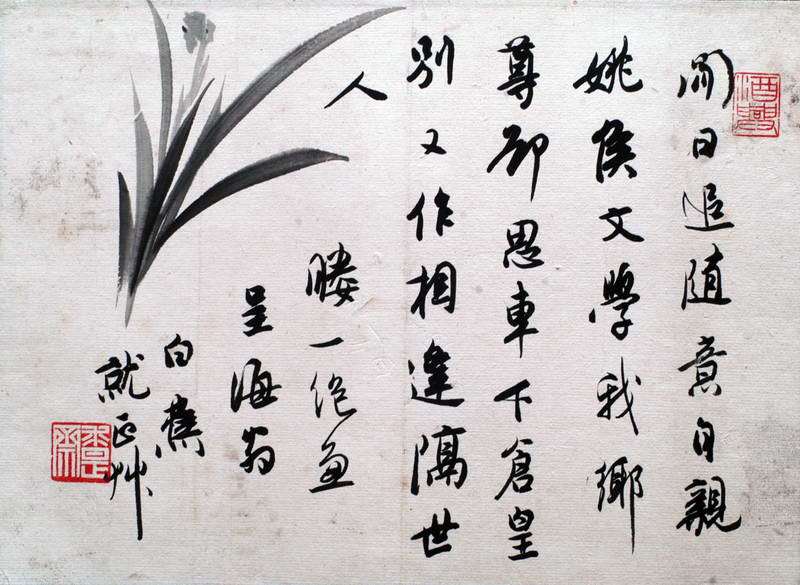 日追随意自親
姚侯文學我鄉
尊却思車下倉皇
別又作相逢隔世
人
一絶
呈海翁
白蕉
就正艸